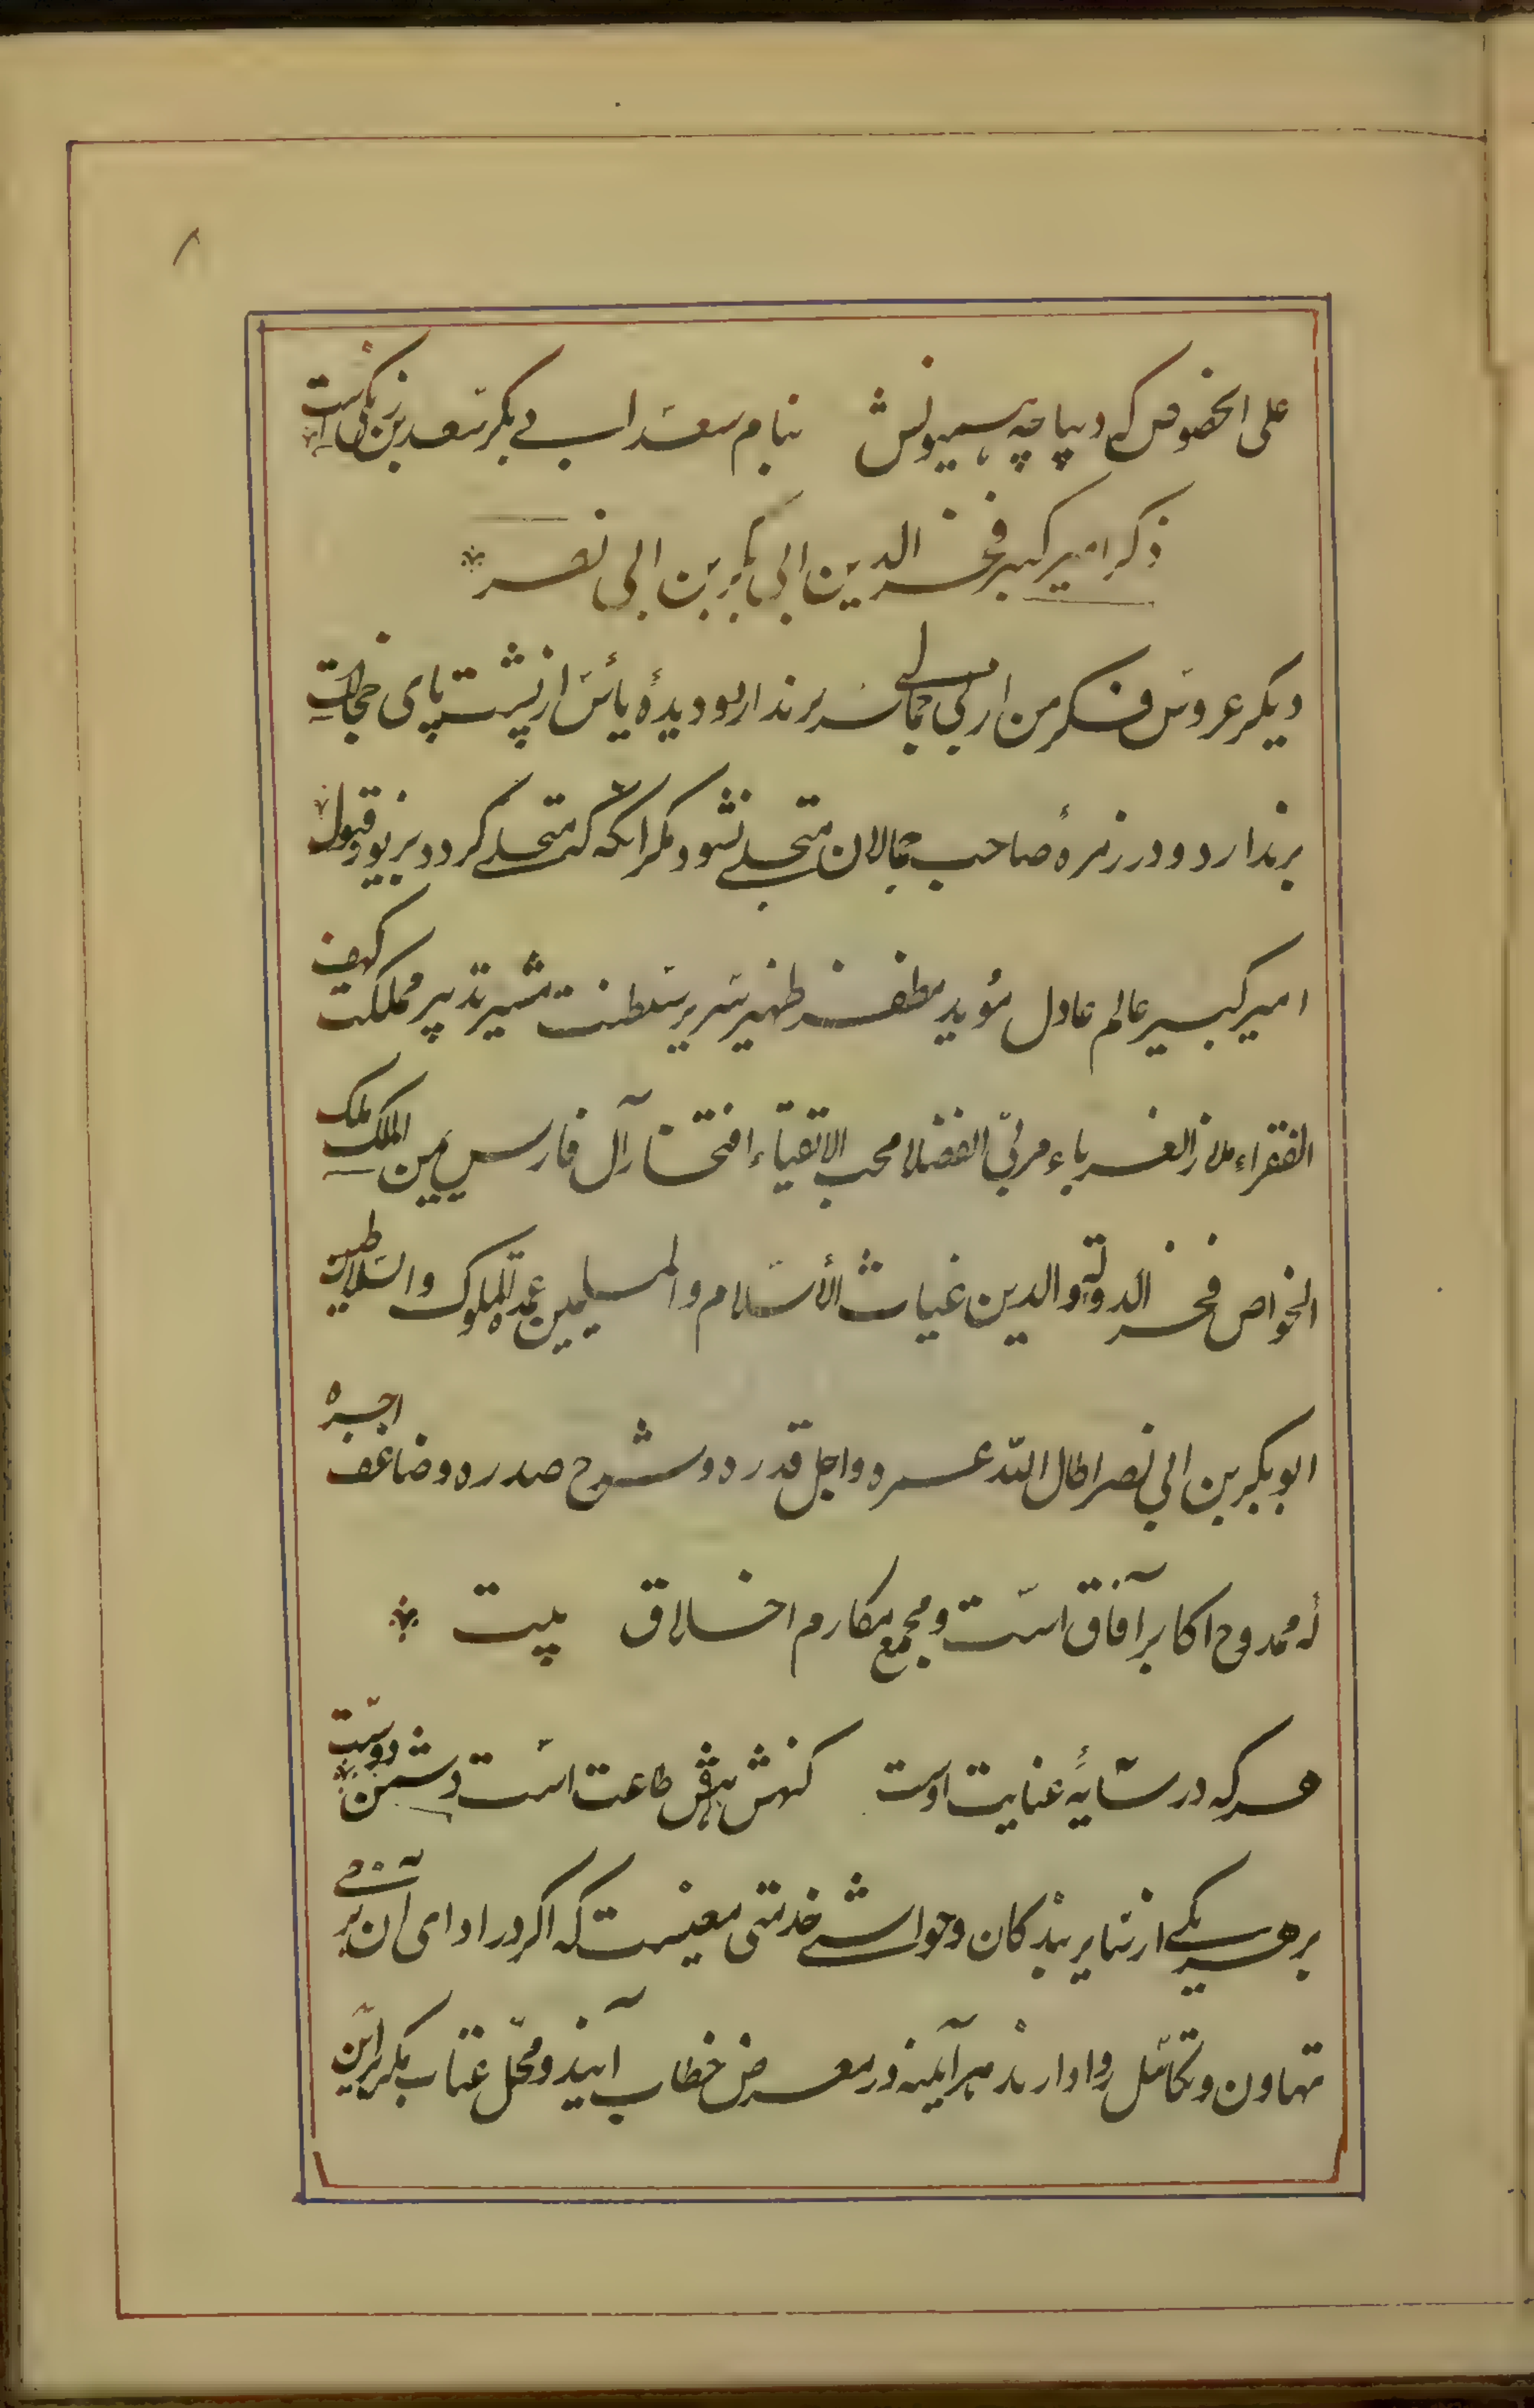 ۸
علی الخصوص که دیباچه همیونش بنام سعد ابی بکر سعد بن زنگی است
ذکر امیر کبیر فخر الدین ابی بکر بن ابی نصر
دیکر عروس فکر من از بی جمالی سر برندارد و دیدهٔ یأس از پشت پای خجالت
برندارد و در زمرهٔ صاحب جمالان متجلی نشود مکر انکه که متحلی کردد بزیور قبول
امیر کبیر عالم عادل مؤید مظفر ظهیر سریر سلطنت مشیر تدبیر مملکت کهف
الفقراء ملاذ الغرباء مربّی الفضلا محب الاتقیاء افتخار آل فارس یمین الملک ملک
الخواص فخر الدولة والدین غیاث الأسلام والمسلمین عمدة الملوک والسلاطین
ابو بکر بن ابی نصر اطال الله عمره و اجل قدره و شرح صدره و ضاعف اجره
که ممدوح اکابر آفاق است و مجمع مکارم اخلاق بیت
هر که در سایهٔ عنایت اوست کنهش طاعت است دشمن دوست
بر هر یکی از سایر بندکان و حواشی خدمتی معینست که اکر در ادای آن برخی
تهاون و تکاسل روا دارند هرآینه در معرض خطاب آیند و محل عتاب مکر براین